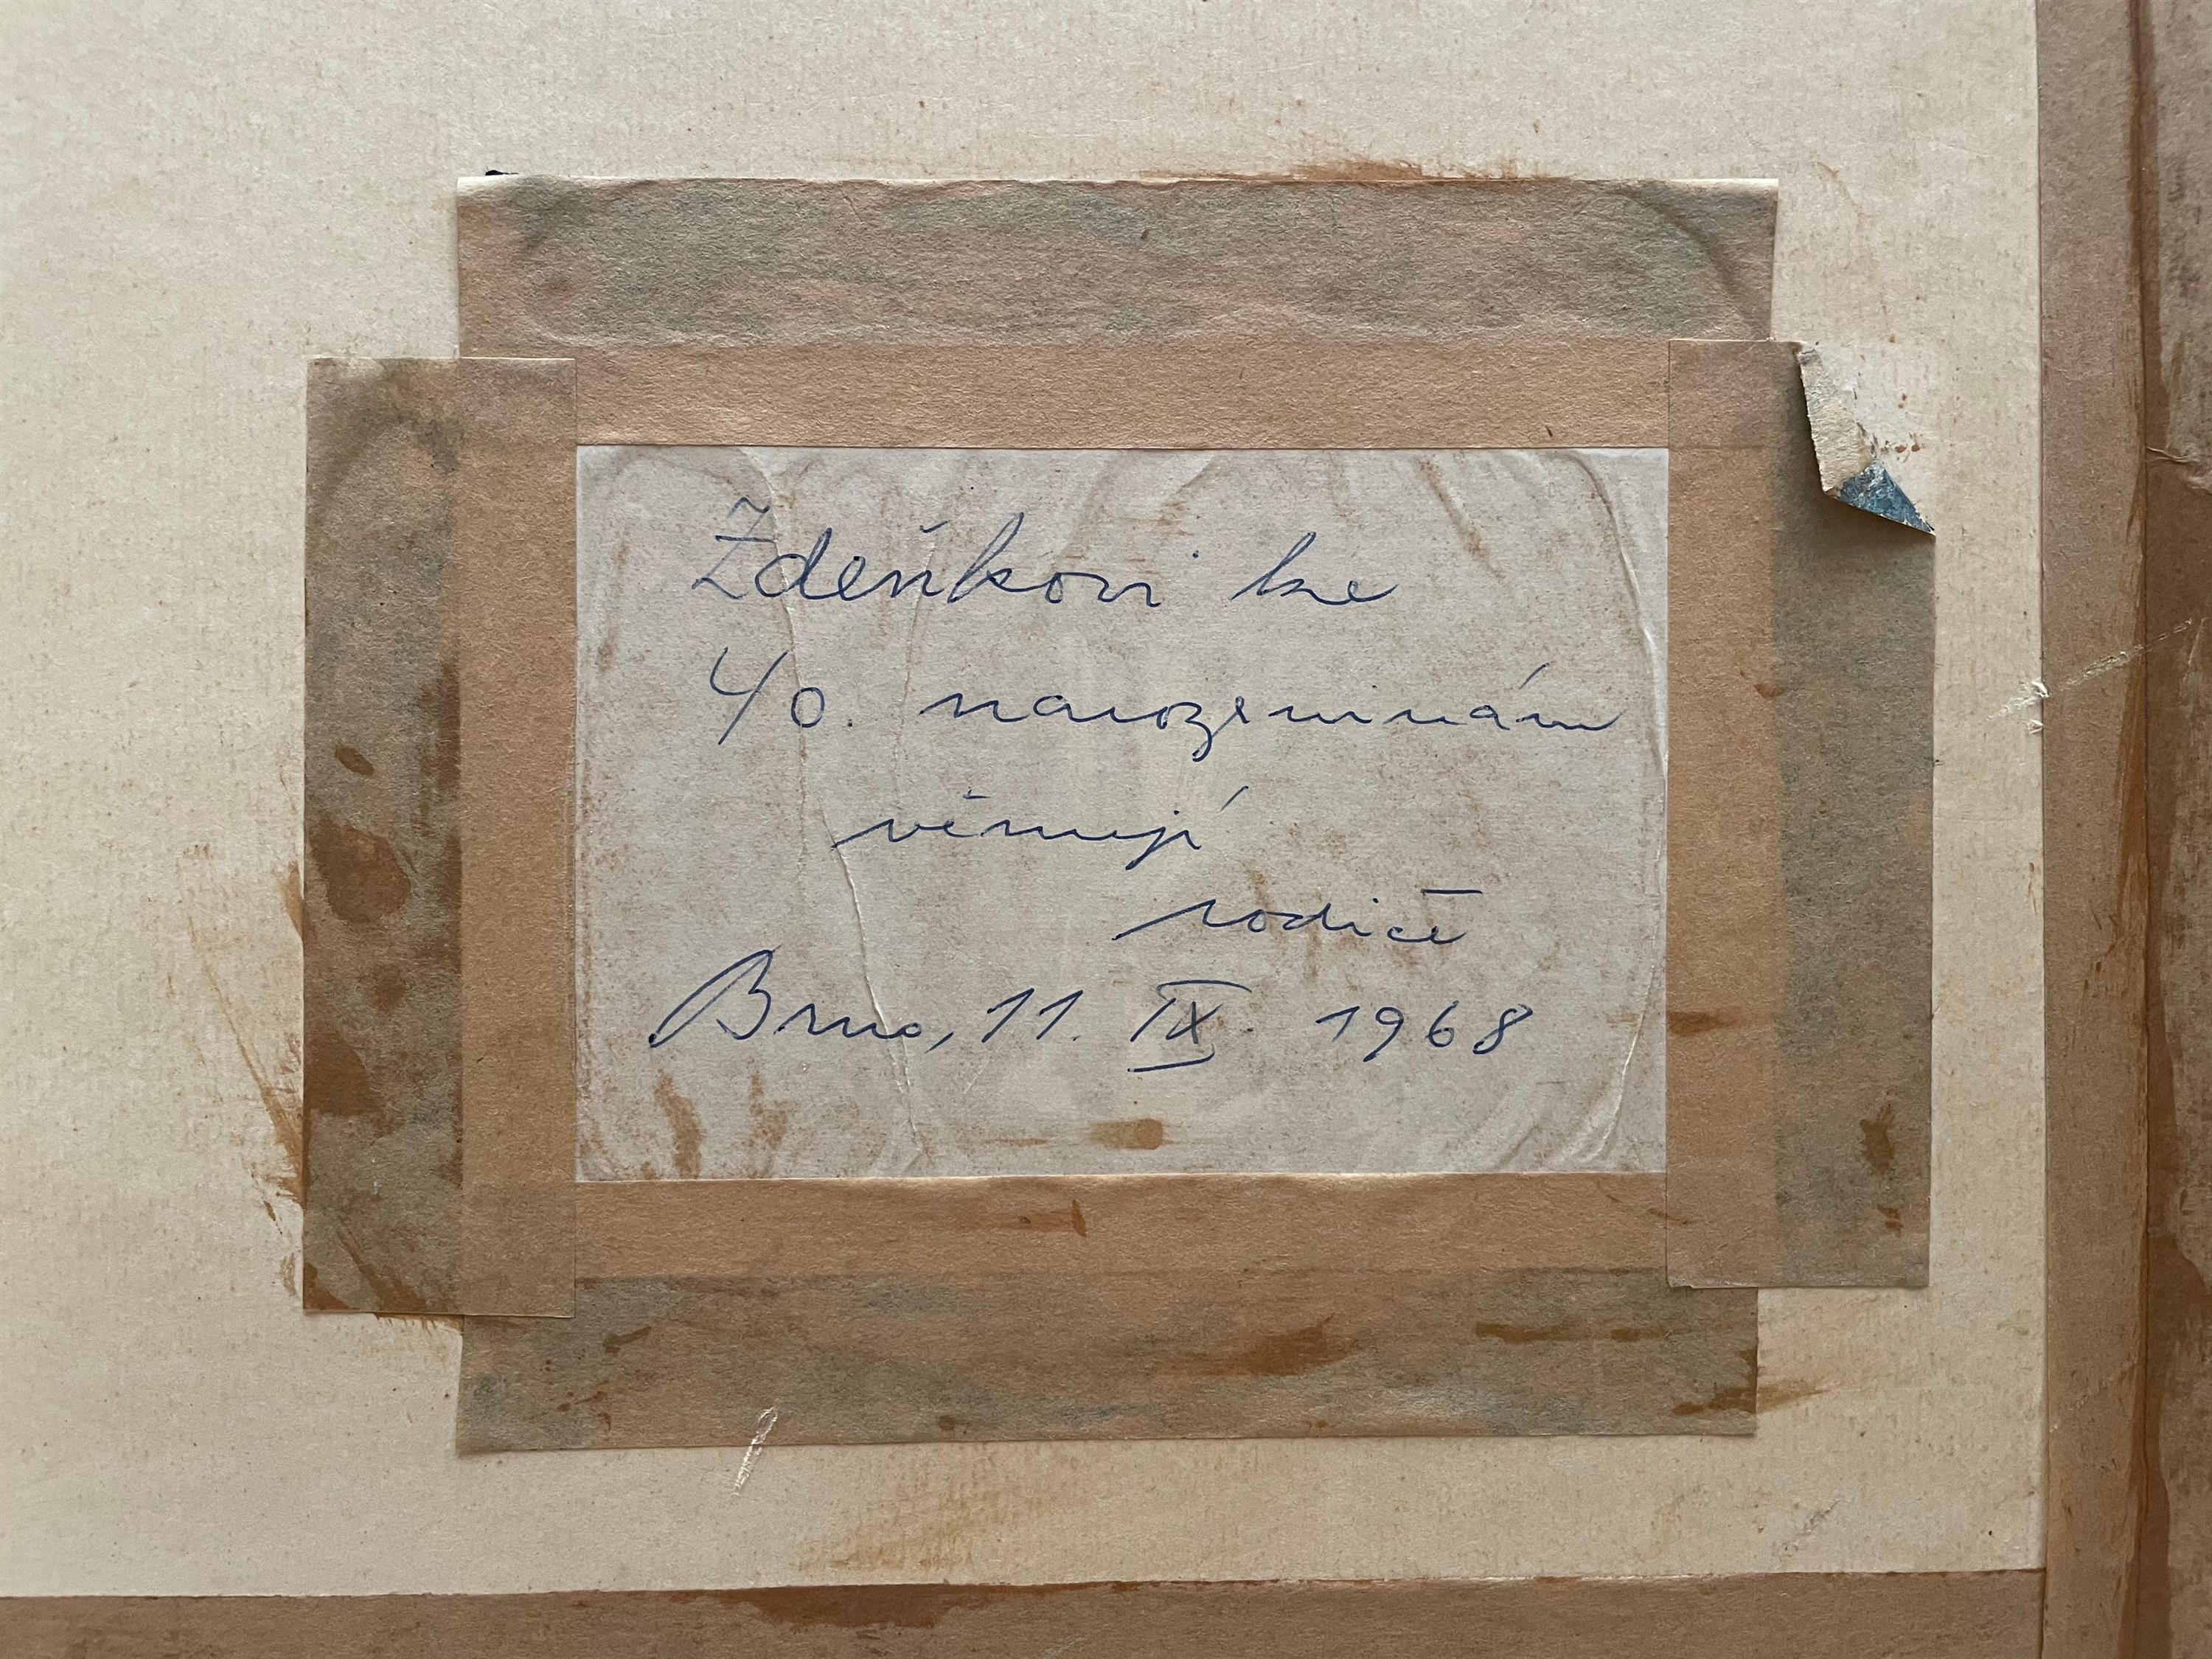 Zdeňkovi ke
40. narozeninám
věnují
rodiče
Brno, 11. IX. 1968